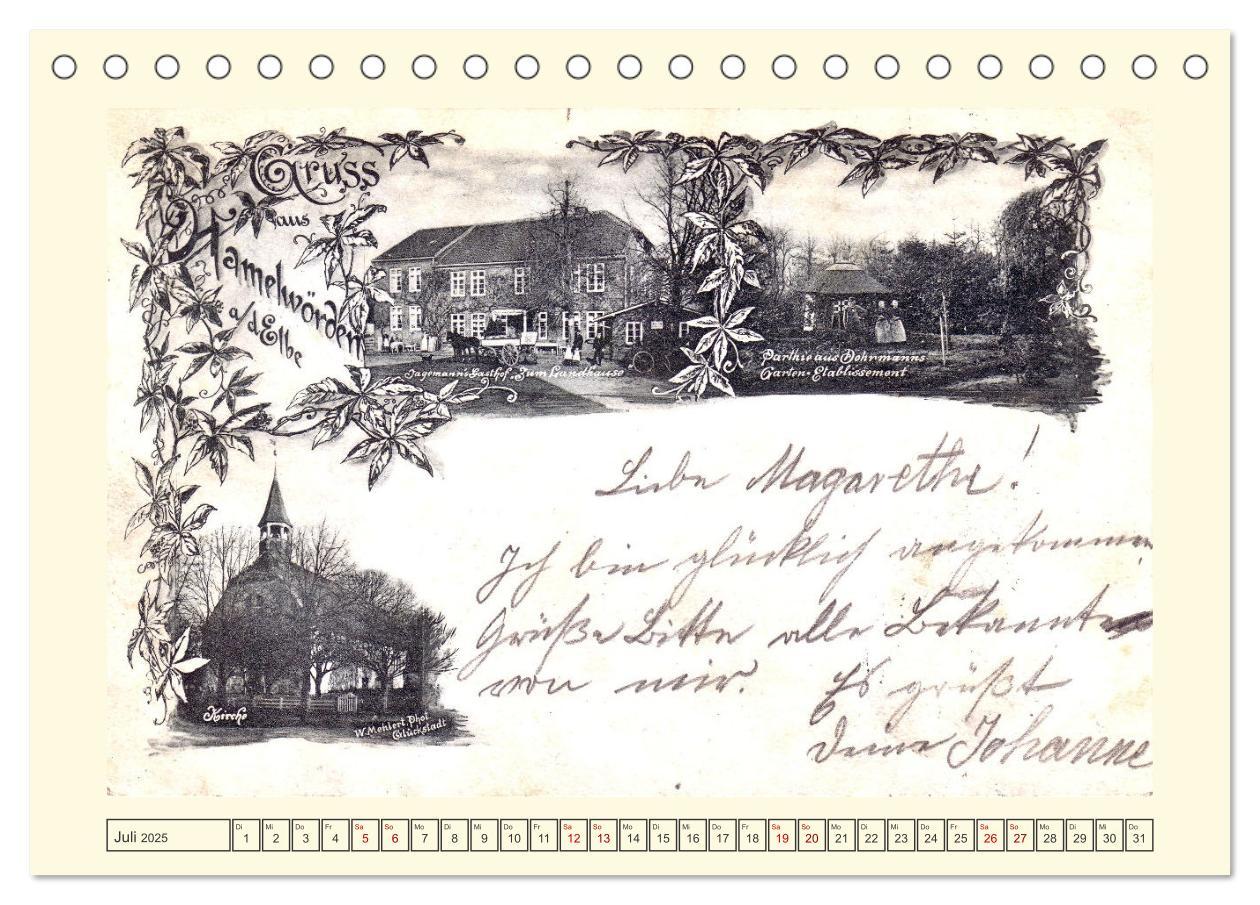 Gruss
aus
Hamelwörden
a/d Elbe
Jagemann's Gasthof „Zum Landhause"
Parthie aus Dohrmanns
Garten-Etablissement
Liebe Magarethe!
Ich bin glücklich angekommen
Grüße Bitte alle Bekannte
von mir. Es grüßt
Deine Johanne
Kirche
W. Mehlert, Phot
Glückstadt
Juli 2025
Di Mi Do Fr Sa So Mo Di Mi Do Fr Sa So Mo Di Mi Do Fr Sa So Mo Di Mi Do Fr Sa So Mo Di Mi Do
1 2 3 4 5 6 7 8 9 10 11 12 13 14 15 16 17 18 19 20 21 22 23 24 25 26 27 28 29 30 31